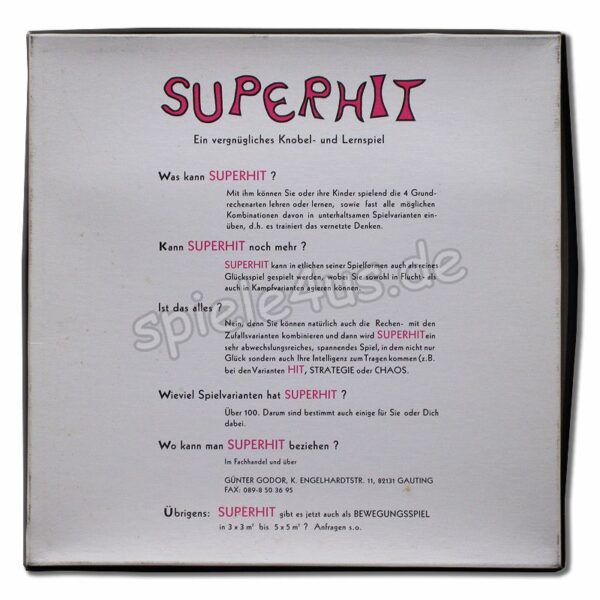 SUPERHIT
Ein vergnügliches Knobel- und Lernspiel
Was kann SUPERHIT ?
Mit ihm können Sie oder ihre Kinder spielend die 4 Grund-
rechenarten lehren oder lernen, sowie fast alle möglichen
Kombinationen davon in unterhaltsamen Spielvarianten ein-
üben, d.h. es trainiert das vernetzte Denken.
Kann SUPERHIT noch mehr ?
SUPERHIT kann in etlichen seiner Spielformen auch als reines
Glücksspiel gespielt werden, wobei Sie sowohl in Flucht- als
auch in Kampfvarianten agieren können.
Ist das alles ?
Nein, denn Sie können natürlich auch die Rechen- mit den
Zufallsvarianten kombinieren und dann wird SUPERHIT ein
sehr abwechslungsreiches, spannendes Spiel, in dem nicht nur
Glück sondern auch Ihre Intelligenz zum Tragen kommen (z.B.
bei den Varianten HIT, STRATEGIE oder CHAOS.
Wieviel Spielvarianten hat SUPERHIT ?
Über 100. Darum sind bestimmt auch einige für Sie oder Dich
dabei.
Wo kann man SUPERHIT beziehen ?
Im Fachhandel und über
GÜNTER GODOR, K. ENGELHARDTSTR. 11, 82131 GAUTING
FAX: 089-8 50 36 95
Übrigens: SUPERHIT gibt es jetzt auch als BEWEGUNGSSPIEL
in 3 x 3 m² bis 5 x 5 m² ? Anfragen s.o.
spiele4us.de